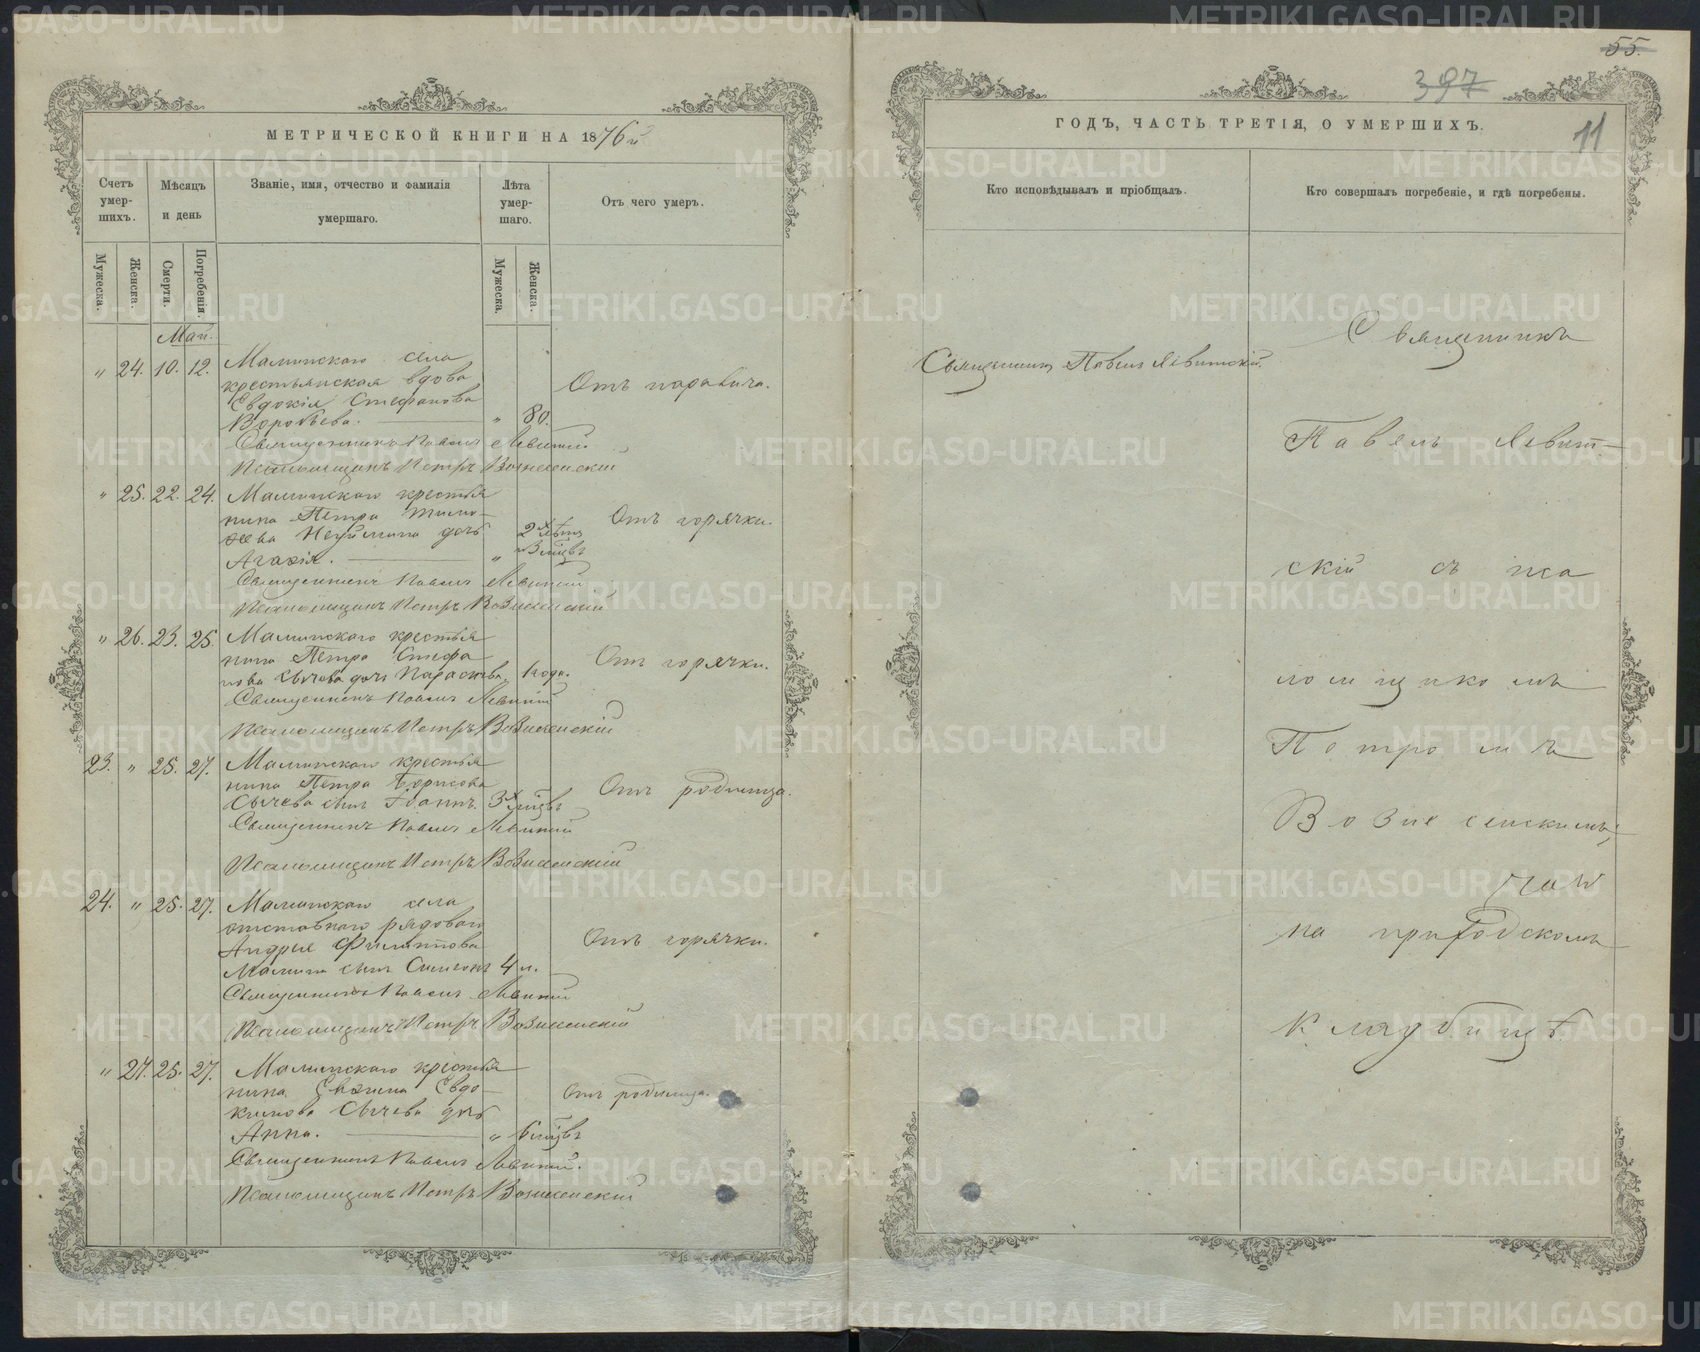 МЕТРИЧЕСКОЙ КНИГИ НА 1876й
Счетъ умер-шихъ.
Мѣсяцъ и день
Званіе, имя, отчество и фамилія умершаго.
Лѣта умер-шаго.
Отъ чего умеръ.
Мужеска.
Женска.
Смерти.
Погребенія.
Мужеска.
Женска.
Май.
" 24. 10. 12. Маминскаго села
крестьянская вдова
Евдокія Стефанова
Воробьева. " 80.
Отъ паралича.
Священникъ Павелъ Левитскій
Псаломщикъ Петръ Вознесенскій
" 25. 22. 24. Маминскаго крестья
нина Петра Тимо-
ѳеева дочь
Агаѳія. " 2х лѣтъ
Отъ горячки.
Священникъ Павелъ Левитскій
Псаломщикъ Петръ Вознесенскій
" 26. 23. 25. Маминскаго крестья
нина Петра Стефа
нова Сычева дочь Параскева 1 года.
Отъ горячки.
Священникъ Павелъ Левитскій
Псаломщикъ Петръ Вознесенскій
23. " 25. 27. Маминскаго крестья
нина Петра Борисова
Сычева сынъ Іоаннъ. 3х мѣсцв
Отъ родимца.
Священникъ Павелъ Левитскій
Псаломщикъ Петръ Вознесенскій
24. " 25. 27. Маминскаго села
отставнаго рядоваго
Андрея Филиппова
Мамина сынъ Симеонъ 4 н.
Отъ горячки.
Священникъ Павелъ Левитскій
Псаломщикъ Петръ Вознесенскій
" 27. 25. 27. Маминскаго крестья
нина Евдо-
кимова Сычева дочь
Анна. " 6 мѣсцв
Отъ родимца.
Священникъ Павелъ Левитскій.
Псаломщикъ Петръ Вознесенскій
55.
397
11
ГОДЪ, ЧАСТЬ ТРЕТІЯ, О УМЕРШИХЪ.
Кто исповѣдывалъ и пріобщалъ.
Кто совершалъ погребеніе, и гдѣ погребены.
Священникъ Павелъ Левитскій.
Священникъ
Павелъ Левит-
скій съ пса
ломщикомъ
Петромъ
Вознесенскимъ,
на приходскомъ
кладбищѣ
METRIKI.GASO-URAL.RU